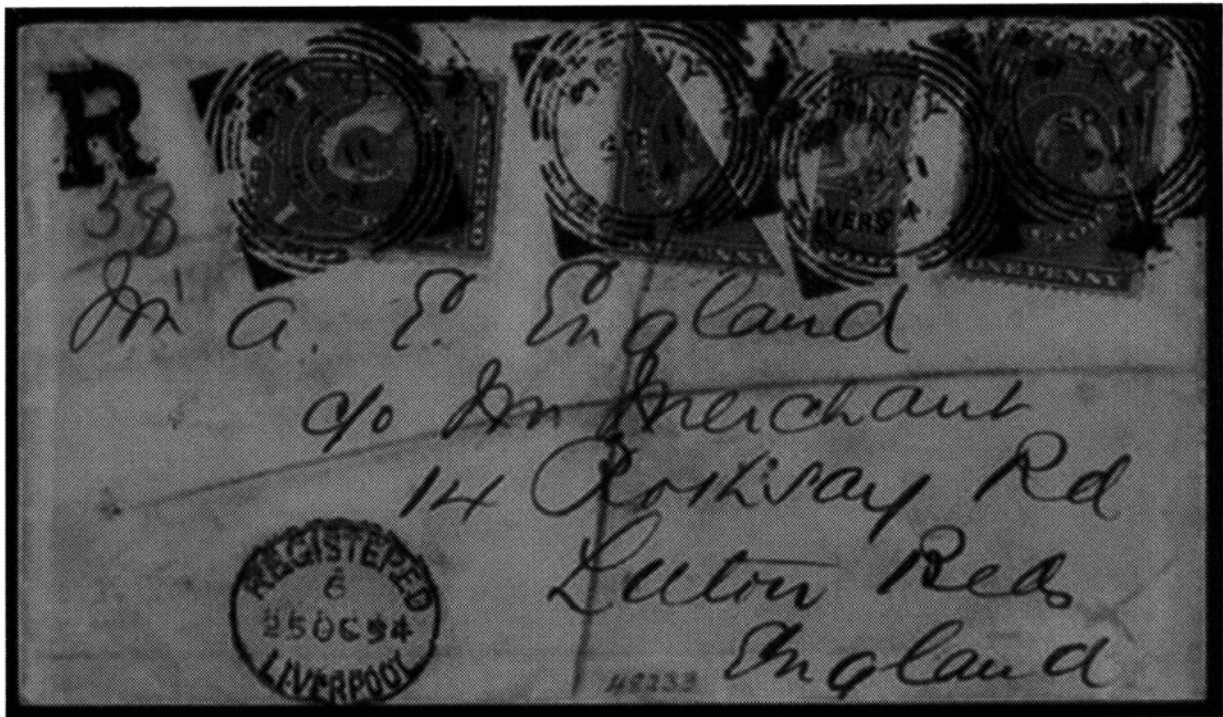 R
38
ONE PENNY
PENNY
ONE PENNY
SP 11
Mr A. E. England
c/o Mr Merchant
14 Rothsay Rd
Luton Beds
England
REGISTERED
6
25 OC 94
LIVERPOOL
48233